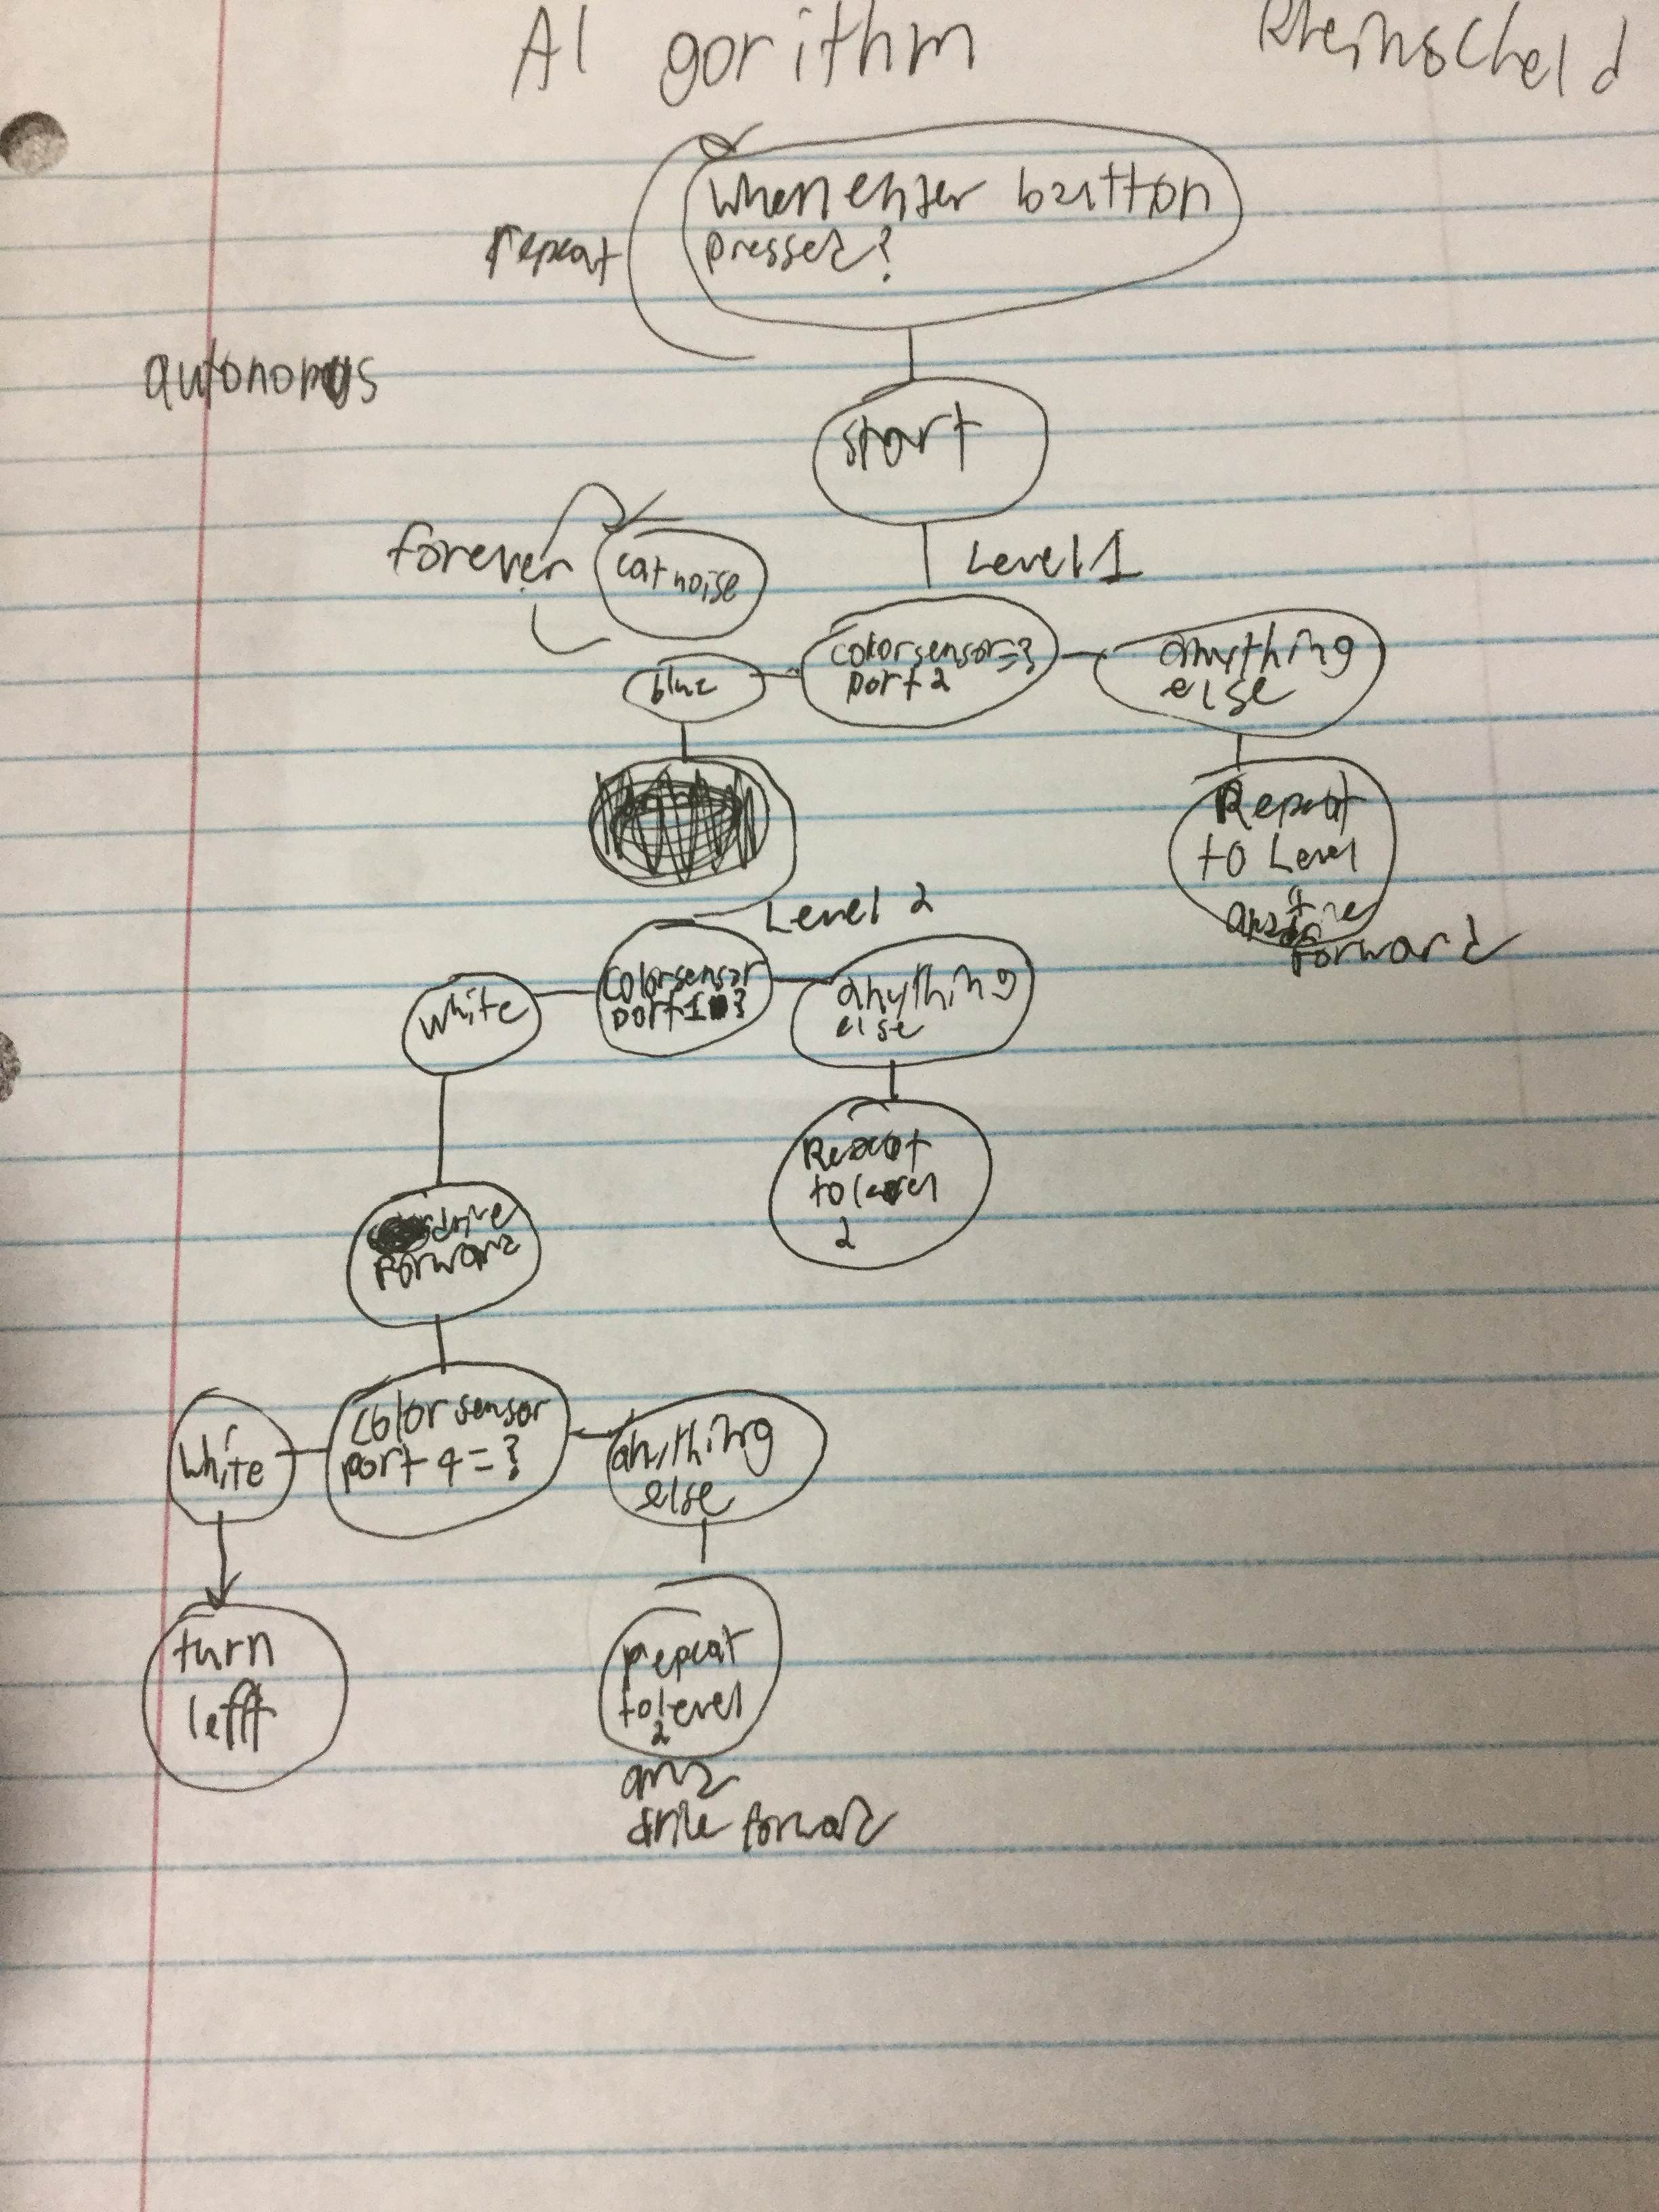 Al gorithm
Rheinscheld
when enter button
pressed?
repeat
autonomus
start
forever
cat noise
Level 1
colorsensor=?
port 2
blue
anything
else
Repeat
to Level
1
and drive
forward
Level 2
colorsensor
port 1 ?
white
anything
else
Repeat
to level
2
drive
forward
color sensor
port 4 = ?
white
anything
else
turn
left
repeat
to level
2
and
drive forward